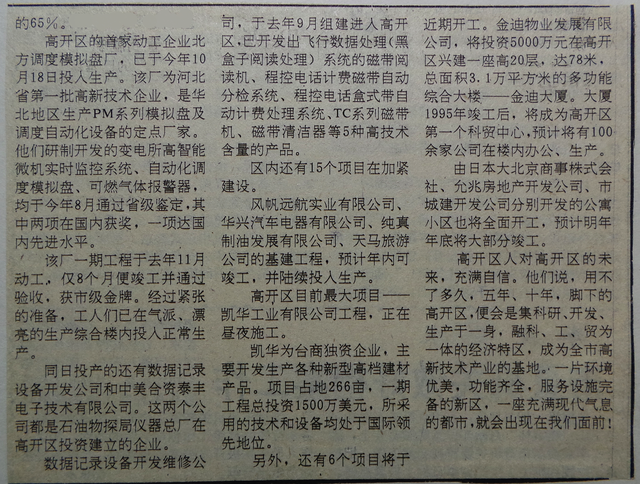 的65%。
高开区的首家动工企业北
方调度模拟盘厂，已于今年10
月18日投入生产。该厂为河北
省第一批高新技术企业，是华
北地区生产PM系列模拟盘及
调度自动化设备的定点厂家。
他们研制开发的变电所高智能
微机实时监控系统、自动化调
度模拟盘、可燃气体报警器，
均于今年8月通过省级鉴定，其
中两项在国内获奖，一项达国
内先进水平。
该厂一期工程于去年11月
动工，仅8个月便竣工并通过
验收，获市级金牌。经过紧张
的准备，工人们已在气派、漂
亮的生产综合楼内投入正常生
产。
同日投产的还有数据记录
设备开发公司和中美合资泰丰
电子技术有限公司。这两个公
司都是石油物探局仪器总厂在
高开区投资建立的企业。
数据记录设备开发维修公
司，于去年9月组建进入高开
区，已开发出飞行数据处理（黑
盒子阅读处理）系统的磁带阅
读机、程控电话计费磁带自动
分检系统、程控电话盒式带自
动计费处理系统、TC系列磁带
机、磁带清洁器等5种高技术
含量的产品。
区内还有15个项目在加紧
建设。
风帆远航实业有限公司、
华兴汽车电器有限公司、纯真
制油发展有限公司、天马旅游
公司的基建工程，预计年内可
竣工，并陆续投入生产。
高开区目前最大项目——
凯华工业有限公司工程，正在
昼夜施工。
凯华为台商独资企业，主
要开发生产各种新型高档建材
产品。项目占地266亩，一期
工程总投资1500万美元，所采
用的技术和设备均处于国际领
先地位。
另外，还有6个项目将于
近期开工。金迪物业发展有限
公司，将投资5000万元在高开
区兴建一座高20层，达78米，
总面积3.1万平方米的多功能
综合大楼——金迪大厦。大厦
1995年竣工后，将成为高开区
第一个科贸中心，预计将有100
余家公司在楼内办公、生产。
由日本大北京商事株式会
社、允兆房地产开发公司、市
城建开发公司分别开发的公寓
小区也将全面开工，预计明年
年底将大部分竣工。
高开区人对高开区的未
来，充满自信。他们说，用不
了多久，五年、十年，脚下的
高开区，便会是集科研、开发、
生产于一身，融科、工、贸为
一体的经济特区，成为全市高
新技术产业的基地。一片环境
优美，功能齐全，服务设施完
备的新区，一座充满现代气息
的都市，就会出现在我们面前！